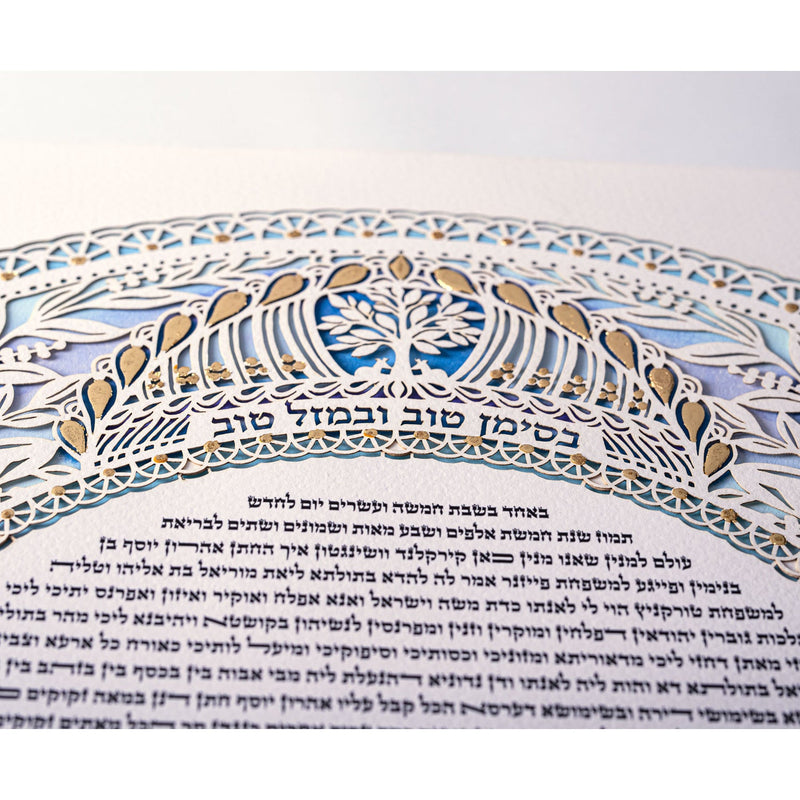 בסימן טוב ובמזל טוב
באחד בשבת חמשה ועשרים יום לחדש
תמוז שנת חמשת אלפים ושבע מאות ושמונים ושתים לבריאת
עולם למנין שאנו מנין כאן קירקלנד וושינגטון איך החתן אהרון יוסף בן
בנימין ופייגע למשפחת פייזנר אמר לה להדא בתולתא ליאת מוריאל בת אליהו וטליה
למשפחת טורקניץ הוי לי לאנתו כדת משה וישראל ואנא אפלח ואוקיר ואיזון ואפרנס יתיכי ליכי
כהלכות גוברין יהודאין דפלחין ומוקרין וזנין ומפרנסין לנשיהון בקושטא ויהיבנא ליכי מהר בתולי
זוזי מאתן דחזי ליכי מדאוריתא ומזוניכי וכסותיכי וסיפוקיכי ומיעל לותיכי כאורח כל ארעא וצבי
בתולתא דא והות ליה לאנתו ודן נדוניא דהנעלת ליה מבי אבוה בין בכסף בין בזהב בין
בשימושי דירה ובשימושא דערסא הכל קבל עליו אהרון יוסף חתן דנן במאה זקוקים